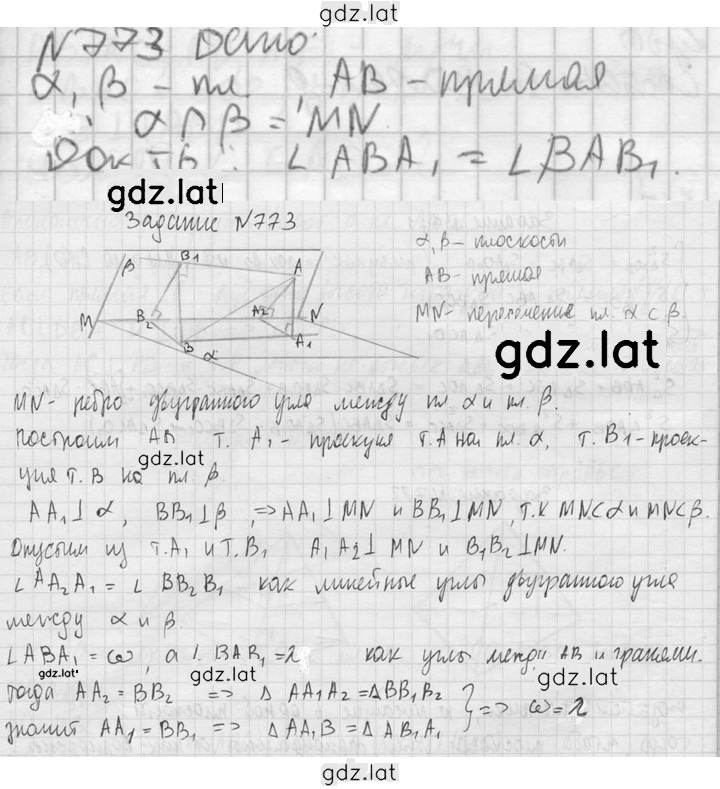 gdz.lat
N773 Дано:
α, β - пл. , AB - прямая
α∩β = MN.
Док-ть: ∠ABA₁ = ∠BAB₁.
gdz.lat
Задание N773
α, β - плоскости
AB - прямая
MN - пересечение пл. α с β.
β B₁ A
M B₂ A₂ N
B α A₁
gdz.lat
MN - ребро двугранного угла между пл. α и пл. β.
Построим AB т. A₁ - проекция т. A на пл. α, т. B₁ - проек-
ция т. B на пл. β.
gdz.lat
AA₁⊥α, BB₁⊥β, ⇒ AA₁⊥MN и BB₁⊥MN, т.к MN⊂α и MN⊂β.
Опустим из т. A₁ и т. B₁ A₁A₂⊥MN и B₁B₂⊥MN.
∠AA₂A₁ = ∠BB₂B₁ как линейные углы двугранного угла
между α и β.
∠ABA₁ = ω, а ∠BAB₁ = λ как углы между AB и гранями.
gdz.lat gdz.lat gdz.lat
тогда AA₂ = BB₂ ⇒ △AA₁A₂ = △BB₁B₂
значит AA₁ = BB₁ ⇒ △AA₁B = △AB₁A₁ } ⇒ ω = λ
gdz.lat